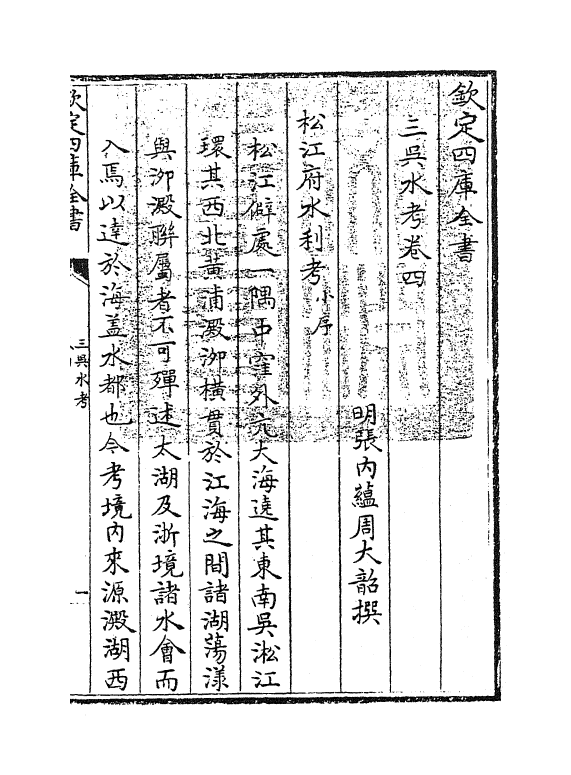 欽定四庫全書
三吳水考卷四
明張內蘊周大韶撰
松江府水利考小序
松江僻處一隅中窪外亢大海遶其東南吳淞江
環其西北黃浦澱泖橫貫於江海之間諸湖蕩漾
與泖澱聯屬者不可殫述太湖及浙境諸水會而
入焉以達於海蓋水都也今考境內來源澱湖西
欽定四庫全書
三吳水考
一